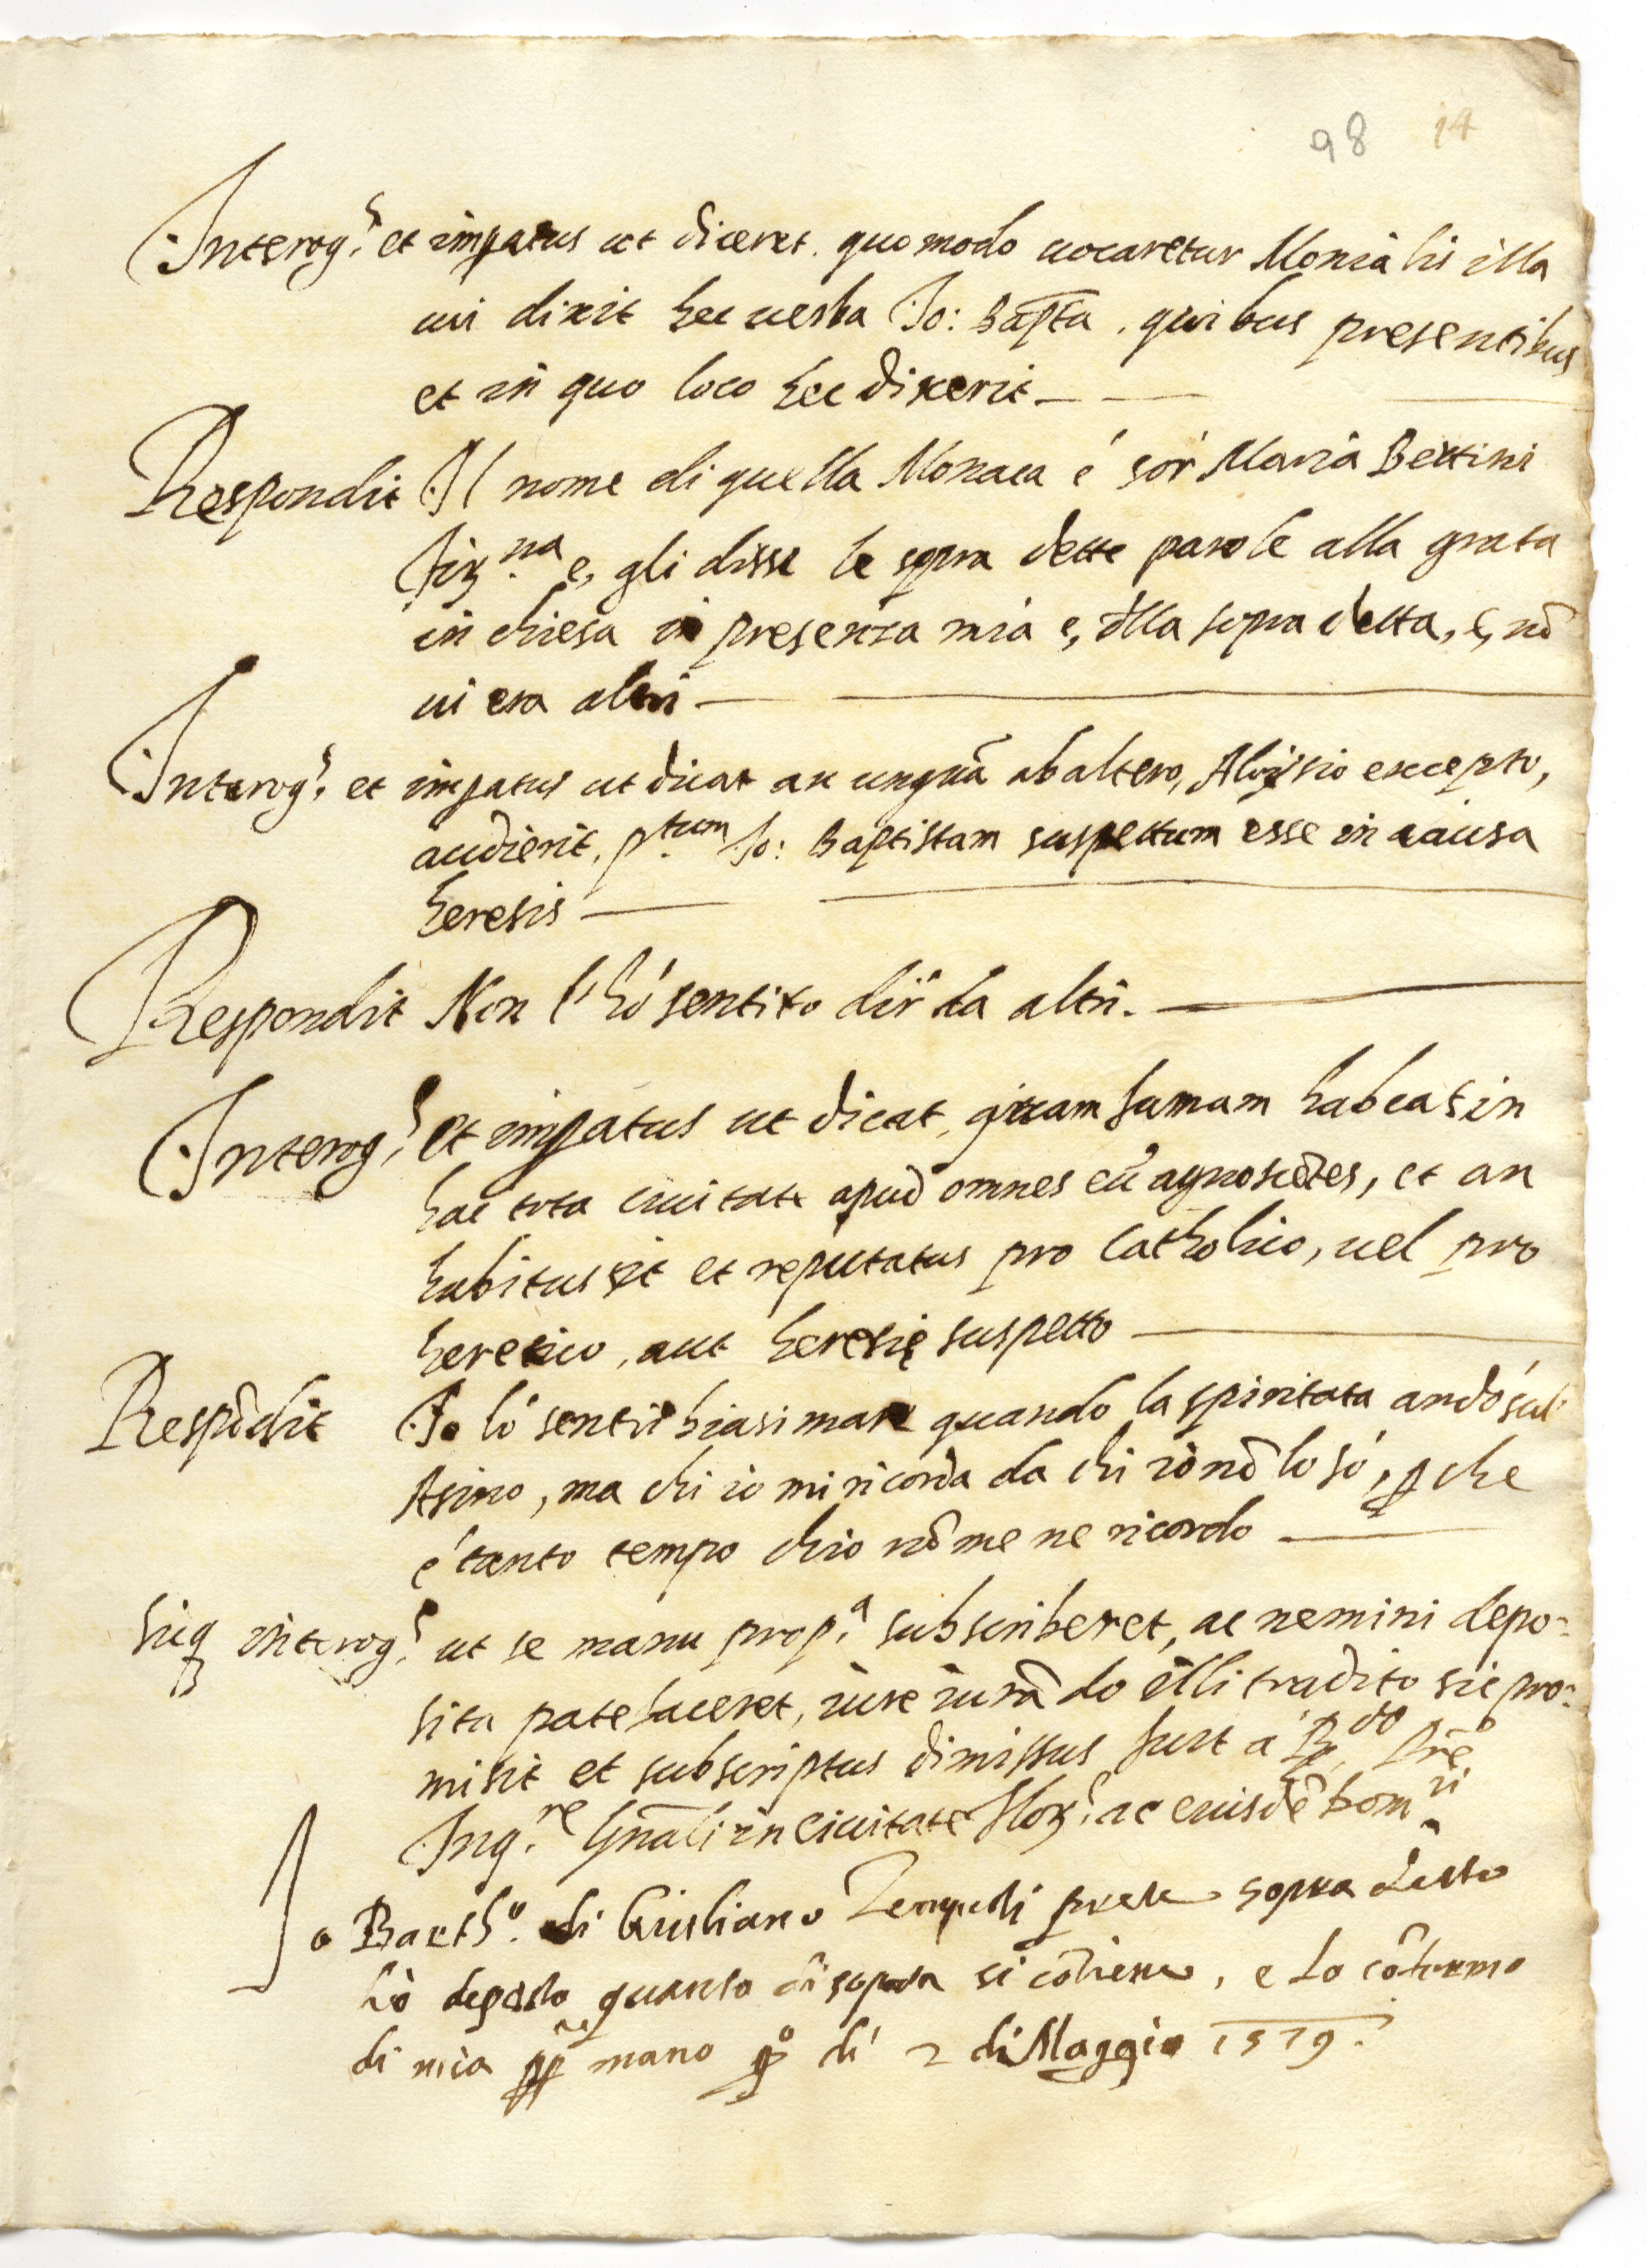 98 14
Interog.s et imp̱atus ut diceret. quomodo uocaretur Monialis illa
cui dixit hec uerba Io: Bapta, quibus presentibus
et in quo loco hec dixerit
Respondit Il nome di quella Monaca é sór Maria Bettini
fior.na e, gli disse le sopra dette parole alla grata
in chiesa in presenza mia e, ella sopra detta, e, nō
ui era altri
Interog.s et imp̱atus ut dicat an unquā ab altero, Aloysio excepto,
audierit, p.tum Io: Baptistam suspettum esse in causa
heresis
Respondit Non l'hó sentito dir da altri.
Interog.s et imp̱atus ut dicat, quam famam habeat in
hac tota ciuitate apud omnes eū agnoscētes, et an
habitus sit et reputatus pro Catholico, uel pro
heretico, aut heresię suspetto
Respōdit Io ló sentii biasimare quando la spiritata andó sul
Asino, ma chi io mi ricorda da chi iò nō lo só, p̱che
é tanto tempo chio nō me ne ricordo
Sicq̱ interog.s ut se manu prop.a subscriberet, ac nemini depo=
sita patefaceret, iure iurādo illi tradito sic pro=
misit et subscriptus dimissus fuit á R.do p̄re
Inq.re gn̄ali in ciuitate flor.s ac eiusdē dom.ii
Io Barth.o di Giuliano prete sopra detto
hò deposto quanto di sopra si cōtiene, e lo cōfermo
di mia pp.a mano q.o dí 2 di Maggio 1579.